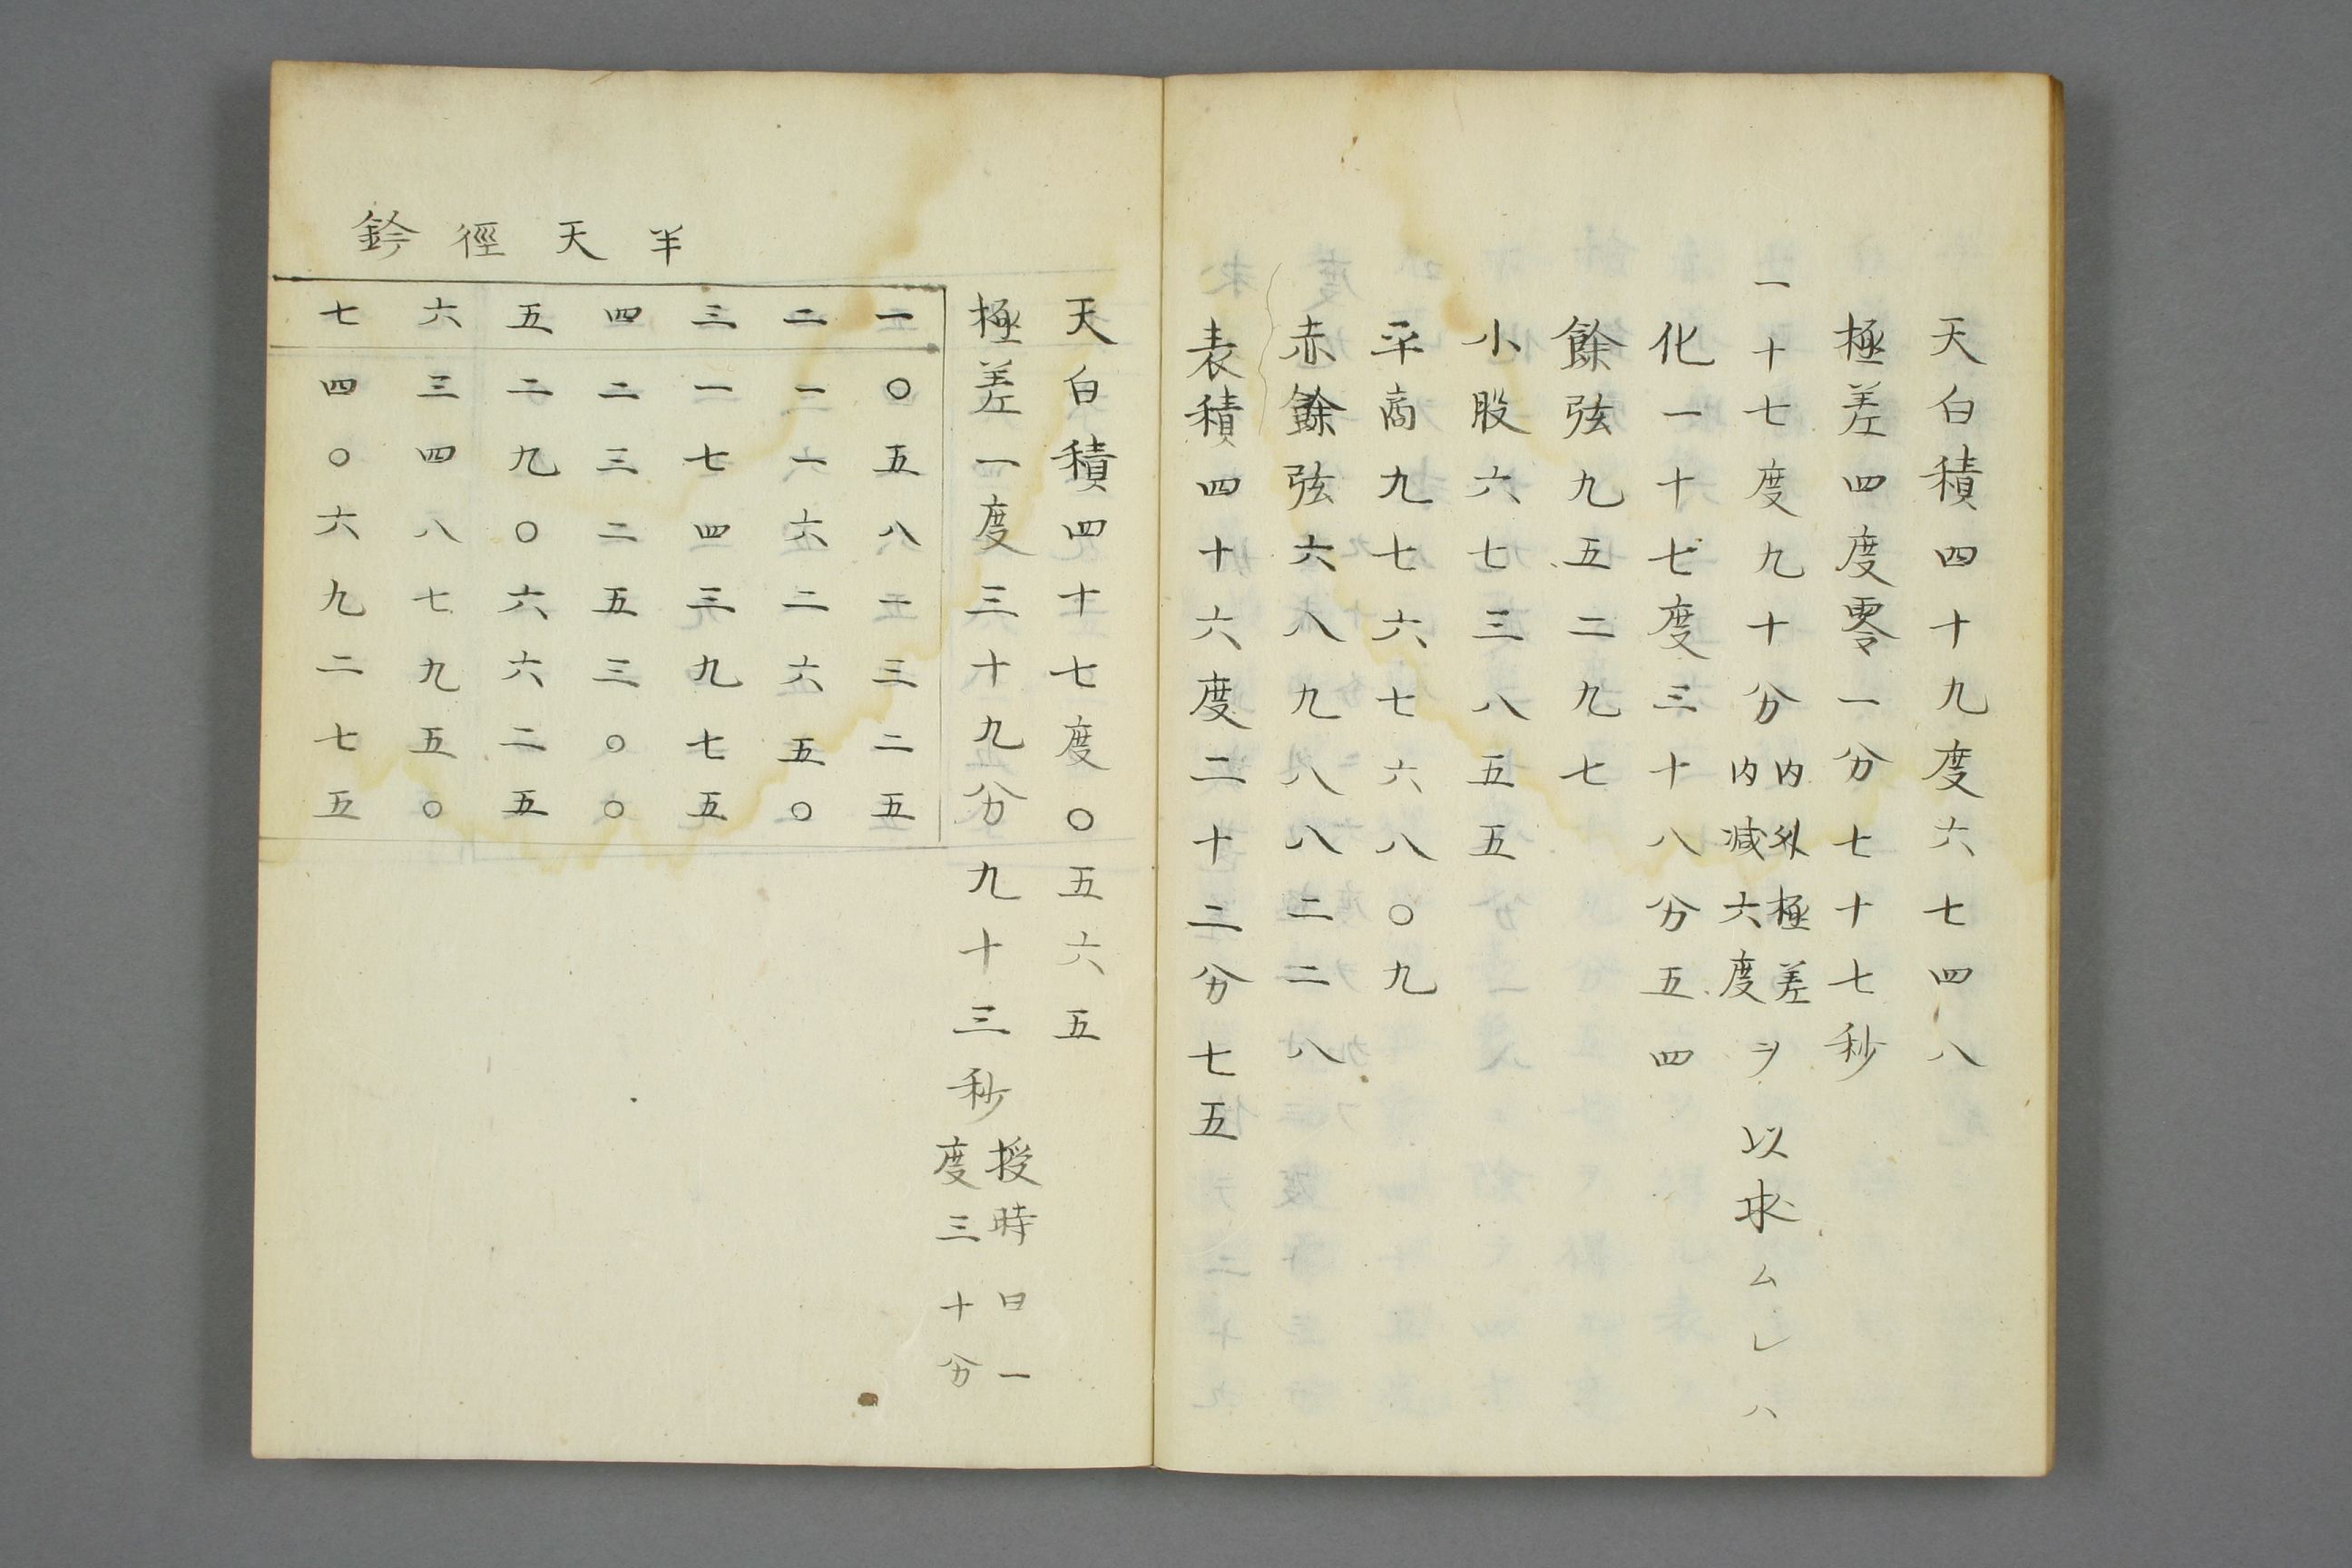 天白積四十九度六七四八
極差四度零一分七十七秒
一十七度九十分内外極差内減六度ヲ以求ムレハ
化一十七度三十八分五四
餘弦九五二九七
小股六七三八五五
平商九七六七六八〇九
赤餘弦六八九八八二二八
表積四十六度二十二分七五
天白積四十七度〇五六五
極差一度三十九分九十三秒授時曰一度三十分
半天徑鈐
一〇五八一三二五
二一一六二六五〇
三一七四三九七五
四二三二五三〇〇
五二九〇六六二五
六三四八七九五〇
七四〇六九二七五